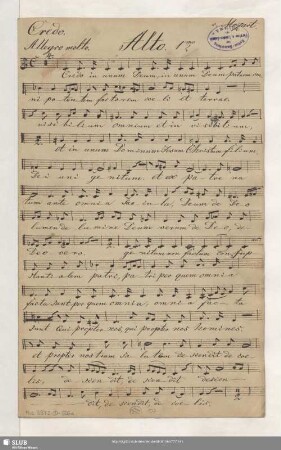 Credo. Mozart.
Allegro molto. Alto. 1mo
Credo in unum Deum, in unum Deum patrem om
ni po ten tem factorem coe li et terrae,
visi bi li um omnium et in vi sibili um,
et in unum Dominum Jesum Christum filium
De i uni ge nitum, et ex pa tre na
tum ante omni a sae cu la, Deum de De o
lumen de lu mine Deum verum de De o, de
Deo ve ro, ge nitum non factum con sub
stanti a lem patri, pa tri per quem omni a
facta sunt per quem omnia, omni a fac ta
sunt Qui propter nos qui propter nos homines,
et propter nostram sa lu tem de scendit de coe
lis, de scen dit de scen dit descen
dit, de scendit de coe lis,
SLUB